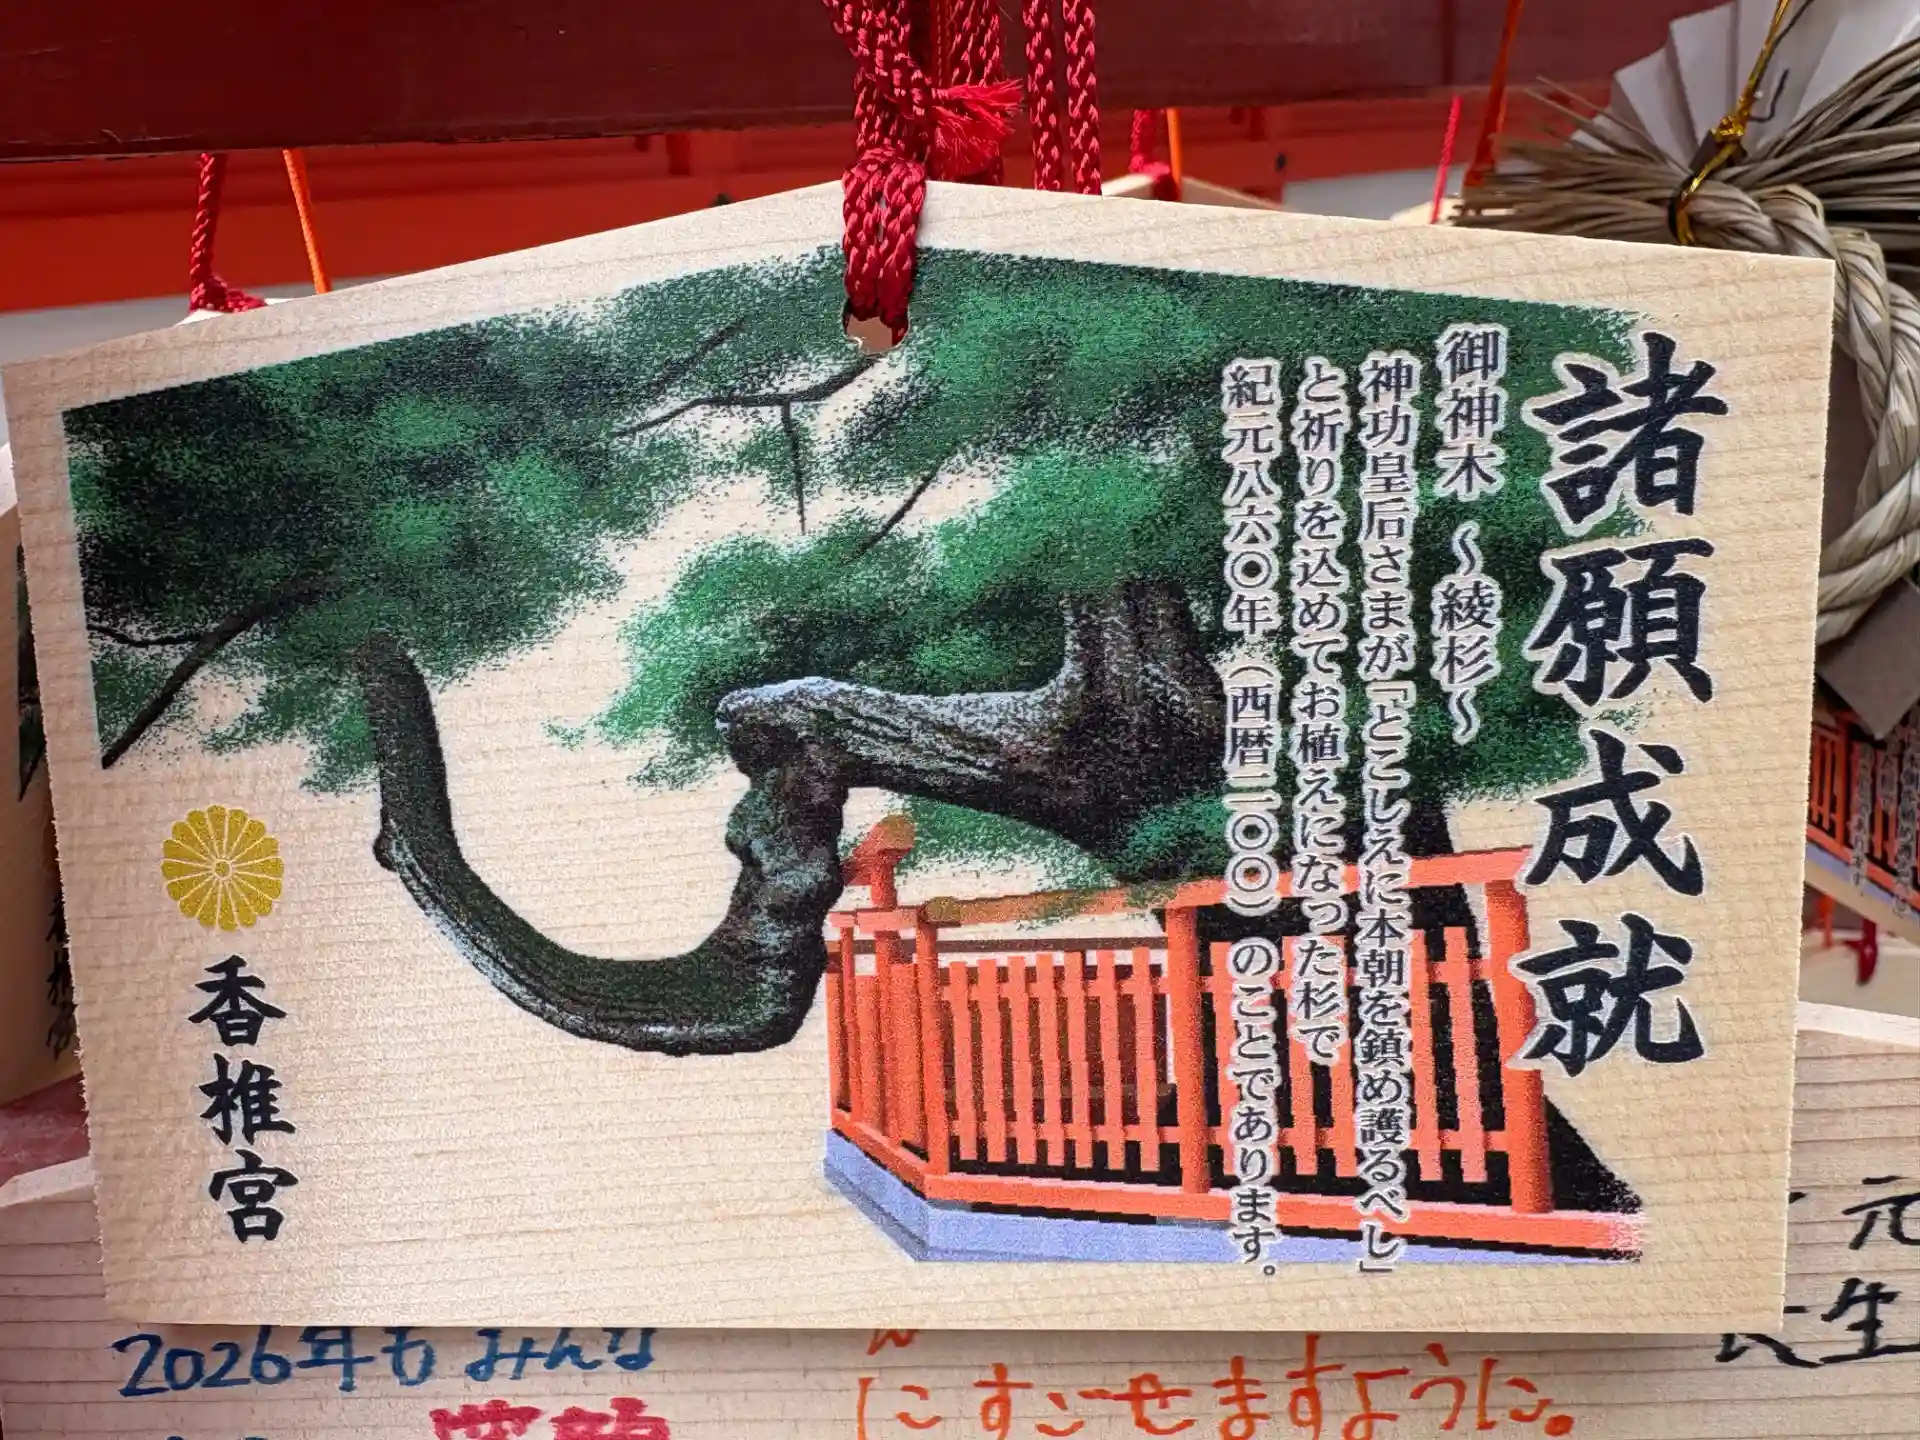 諸願成就
御神木 〜綾杉〜
神功皇后さまが「とこしえに本朝を鎮め護るべし」
と祈りを込めてお植えになった杉で
紀元八六〇年（西暦二〇〇）のことであります。
香椎宮
2026年もみんな
にすごせますように。
元
生